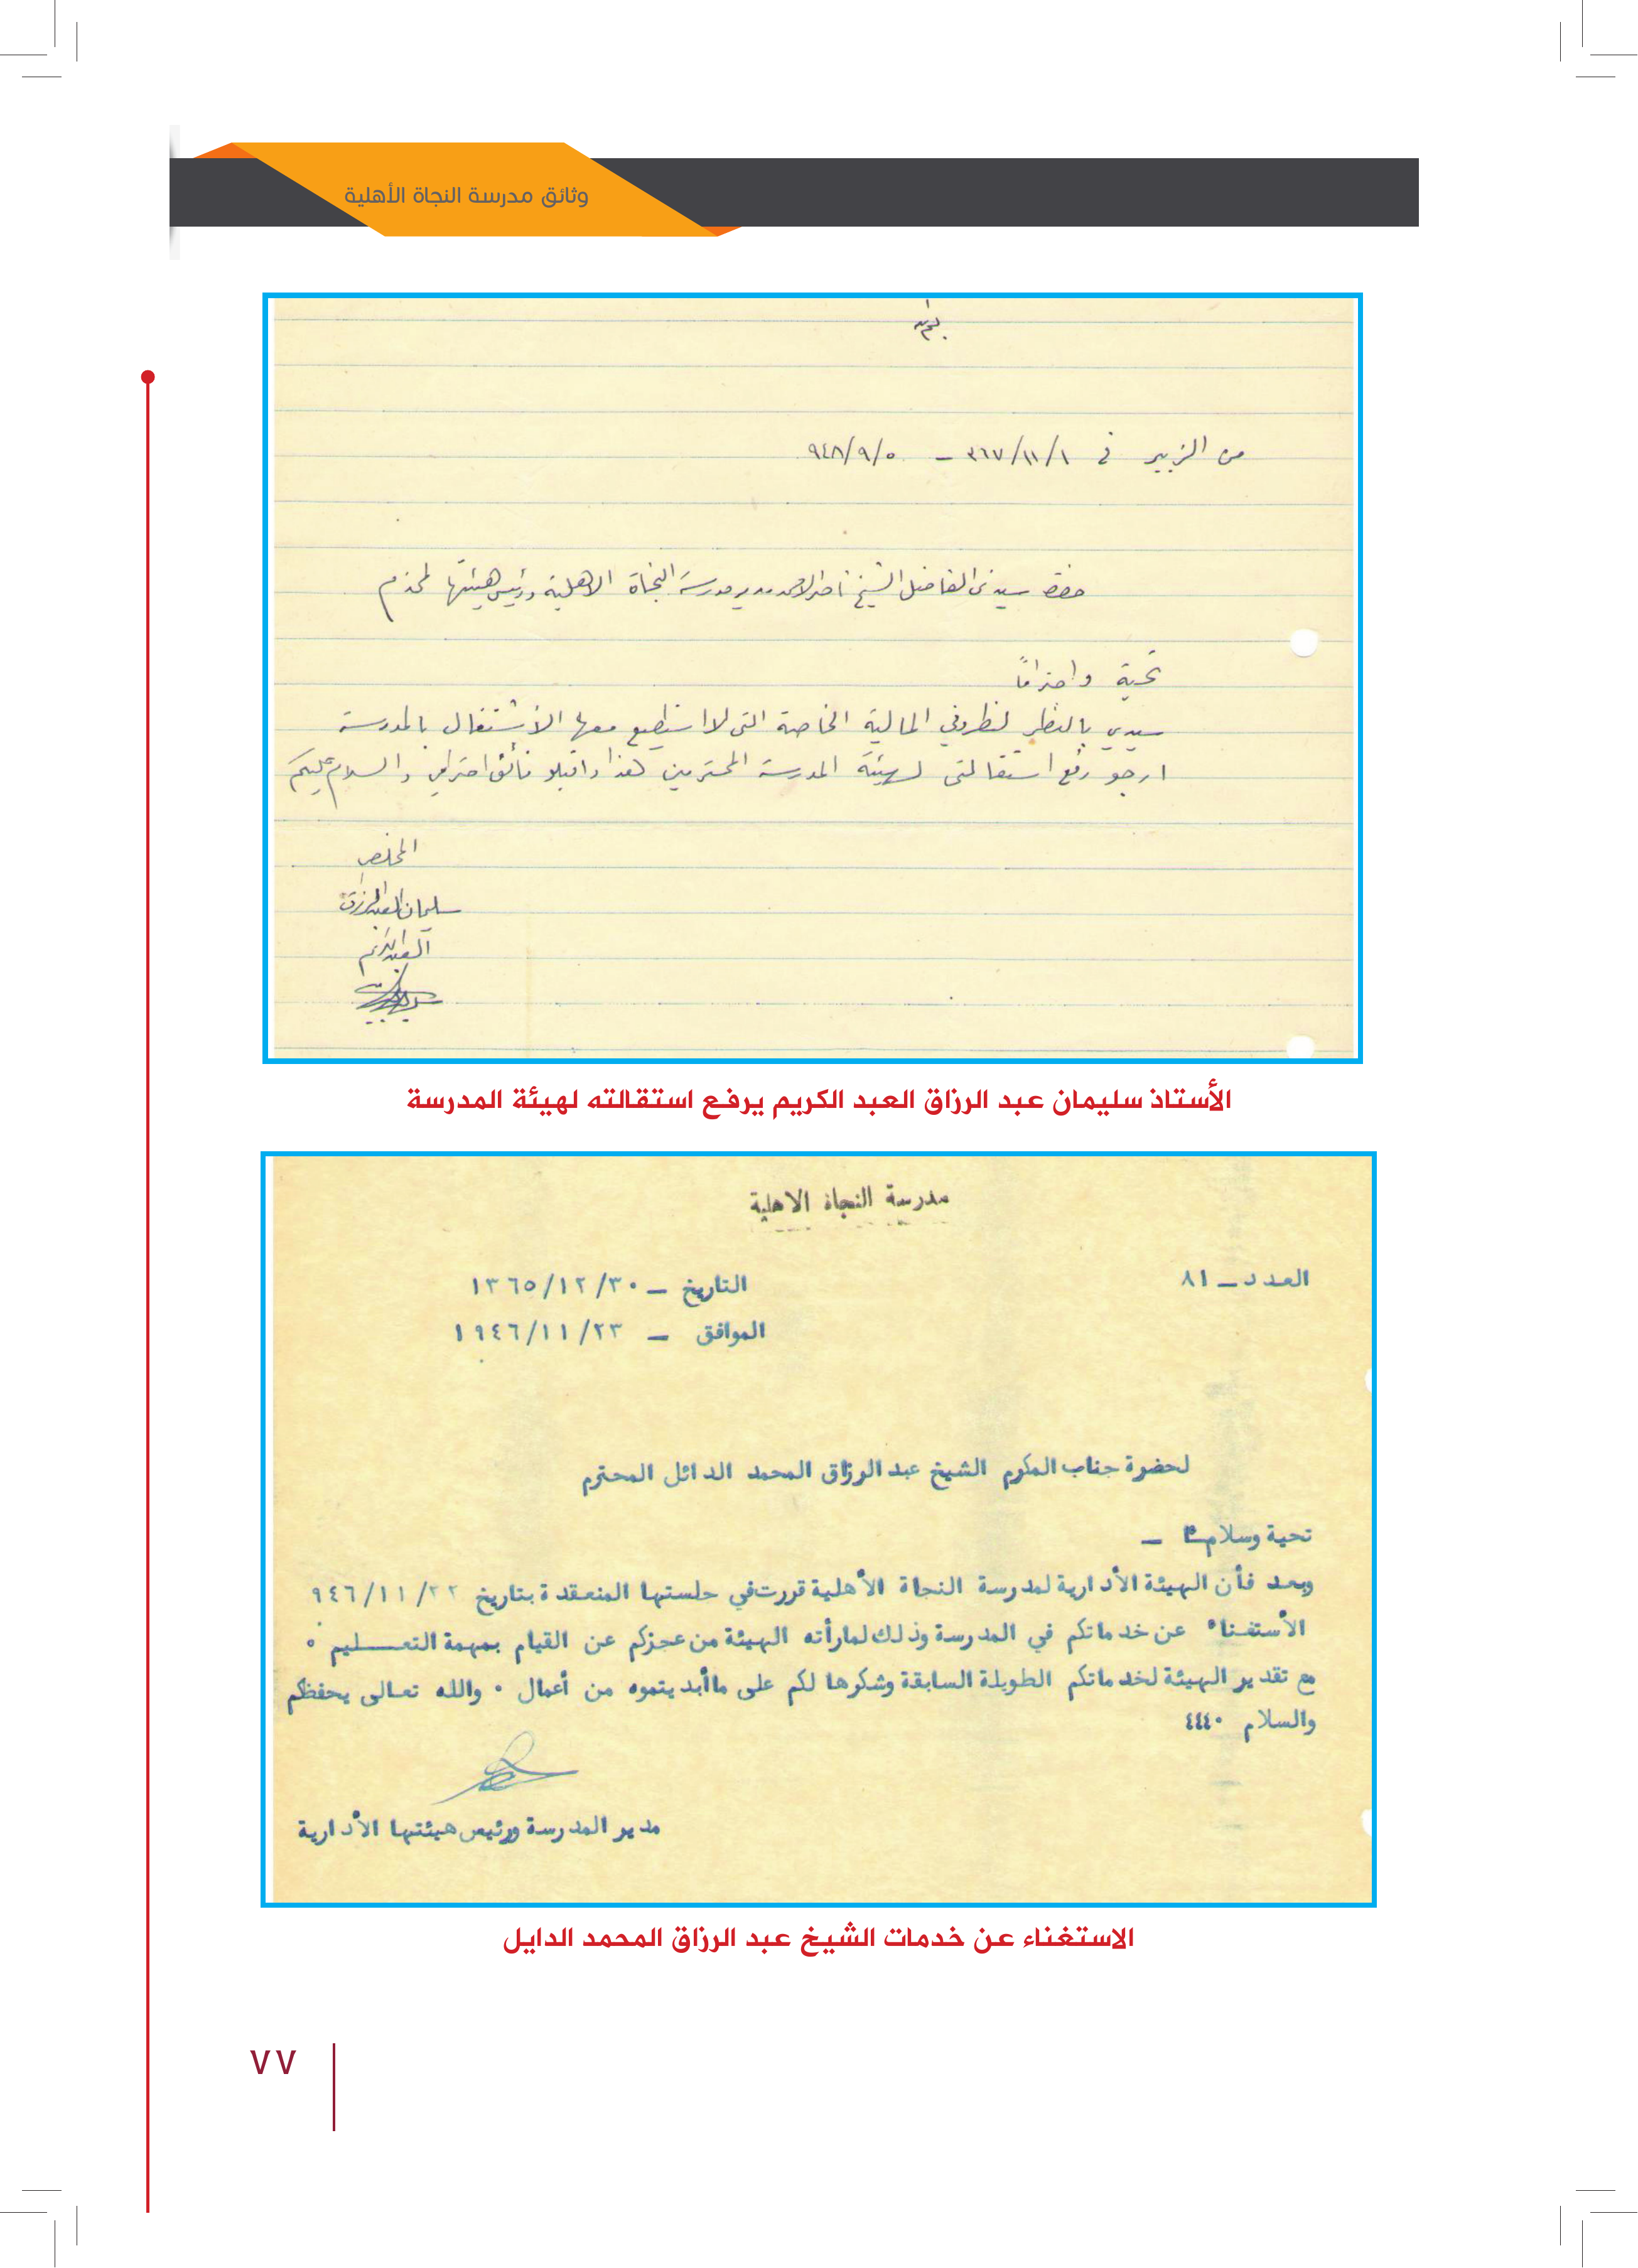 وثائق مدرسة النجاة الأهلية
من الزبير في ٣٦٧/١١/١ – ٩٤٨/٩/٥
حضرة سيدي الفاضل الشيخ ناصر الاحمد مدير مدرسة النجاة الاهلية ورئيس هيئتها المحترم
تحية واحتراماً
سيدي بالنظر لظروفي المالية الخاصة التي لا استطيع معها الأشتغال بالمدرسة
ارجو رفع استقالتي لهيئة المدرسة المحترمين هذا واقبلو فائق احترامي والسلام عليكم
المخلص
سليمان العبدالرزاق
العبدالكريم
الأستاذ سليمان عبد الرزاق العبد الكريم يرفع استقالته لهيئة المدرسة
مدرسة النجاة الاهلية
العدد – ٨١
التاريخ – ١٣٦٥/١٢/٣٠
الموافق – ١٩٤٦/١١/٢٣
لحضرة جناب المكرم الشيخ عبد الرزاق المحمد الدائل المحترم
تحية وسلام –
وبعد فأن الهيئة الأدارية لمدرسة النجاة الأهلية قررت في جلستها المنعقدة بتاريخ ٩٤٦/١١/٢٢
الأستغناء عن خدماتكم في المدرسة وذلك لمارأته الهيئة من عجزكم عن القيام بمهمة التعـــليم ٠
مع تقدير الهيئة لخدماتكم الطويلة السابقة وشكرها لكم على ماأبديتموه من أعمال ٠ والله تعالى يحفظكم
والسلام ٤٤٤٠
مدير المدرسة ورئيس هيئتها الأدارية
الاستغناء عن خدمات الشيخ عبد الرزاق المحمد الدايل
٧٧